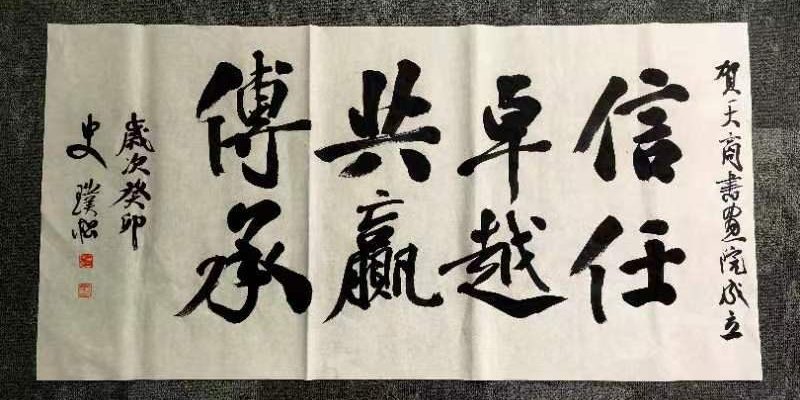 贺天商書画院成立
信任
卓越
共赢
傳承
歲次癸卯
史璞